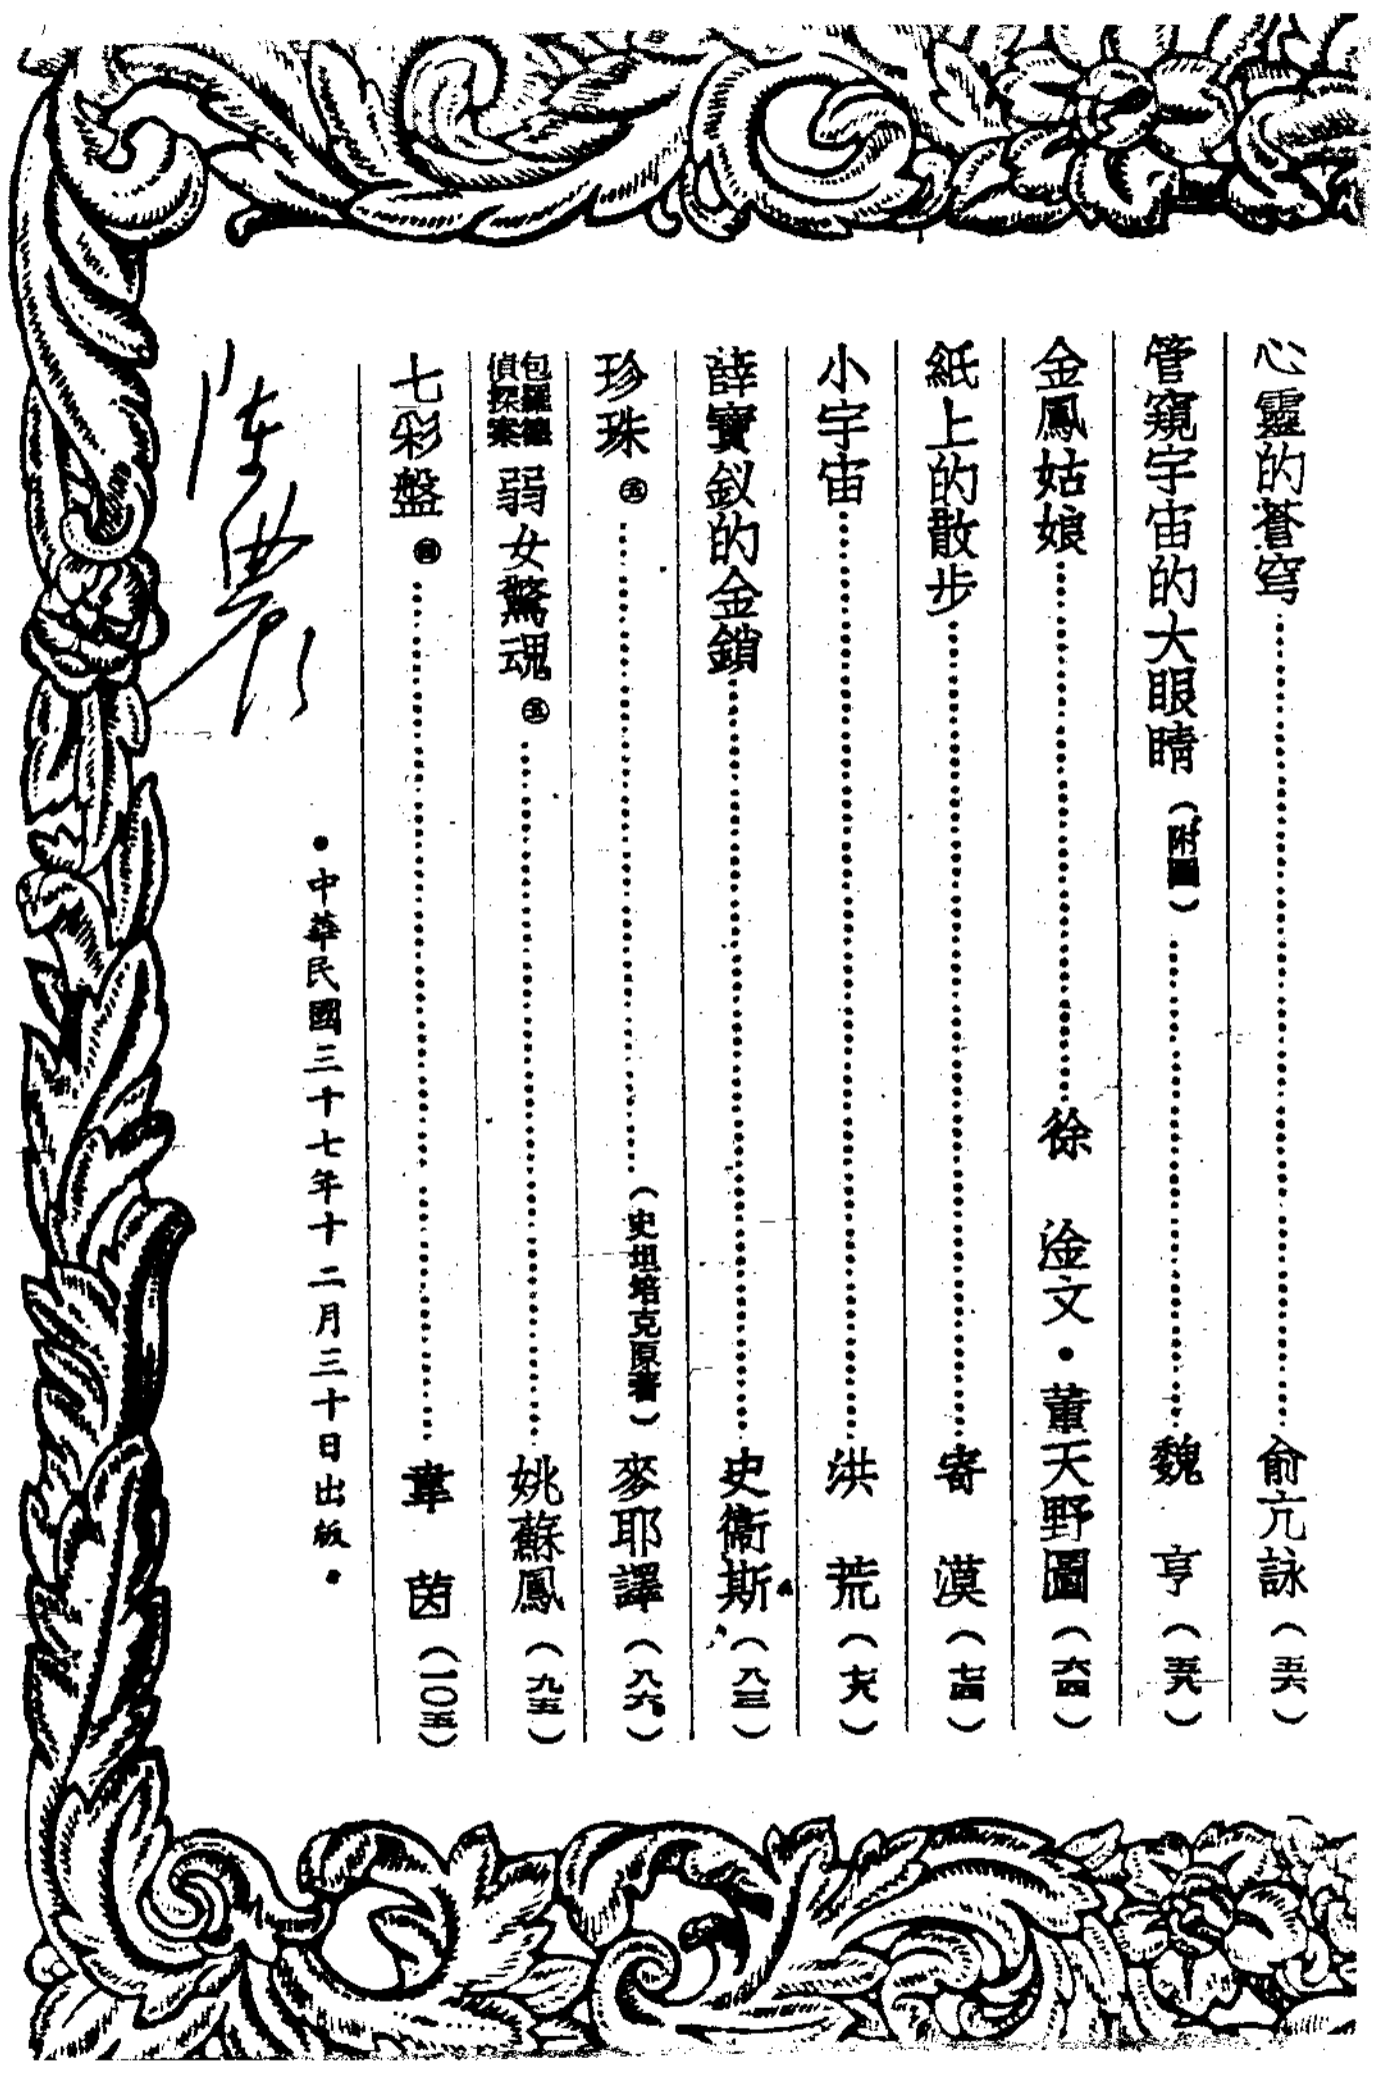 心靈的蒼穹……俞亢詠（五六）
管窺宇宙的大眼睛（附圖）……魏 亨（五九）
金鳳姑娘……徐 淦文・董天野圖（六四）
紙上的散步……寄 漠（七四）
小宇宙……洪 荒（七八）
薛寶釵的金鎖……史衞斯（八三）
珍珠㊄……（史坦培克原著）麥耶譯（八六）
包羅德偵探案 弱女驚魂㊄……姚蘇鳳（九五）
七彩盤㊃……韋 茵（一〇五）
・中華民國三十七年十二月三十日出版・